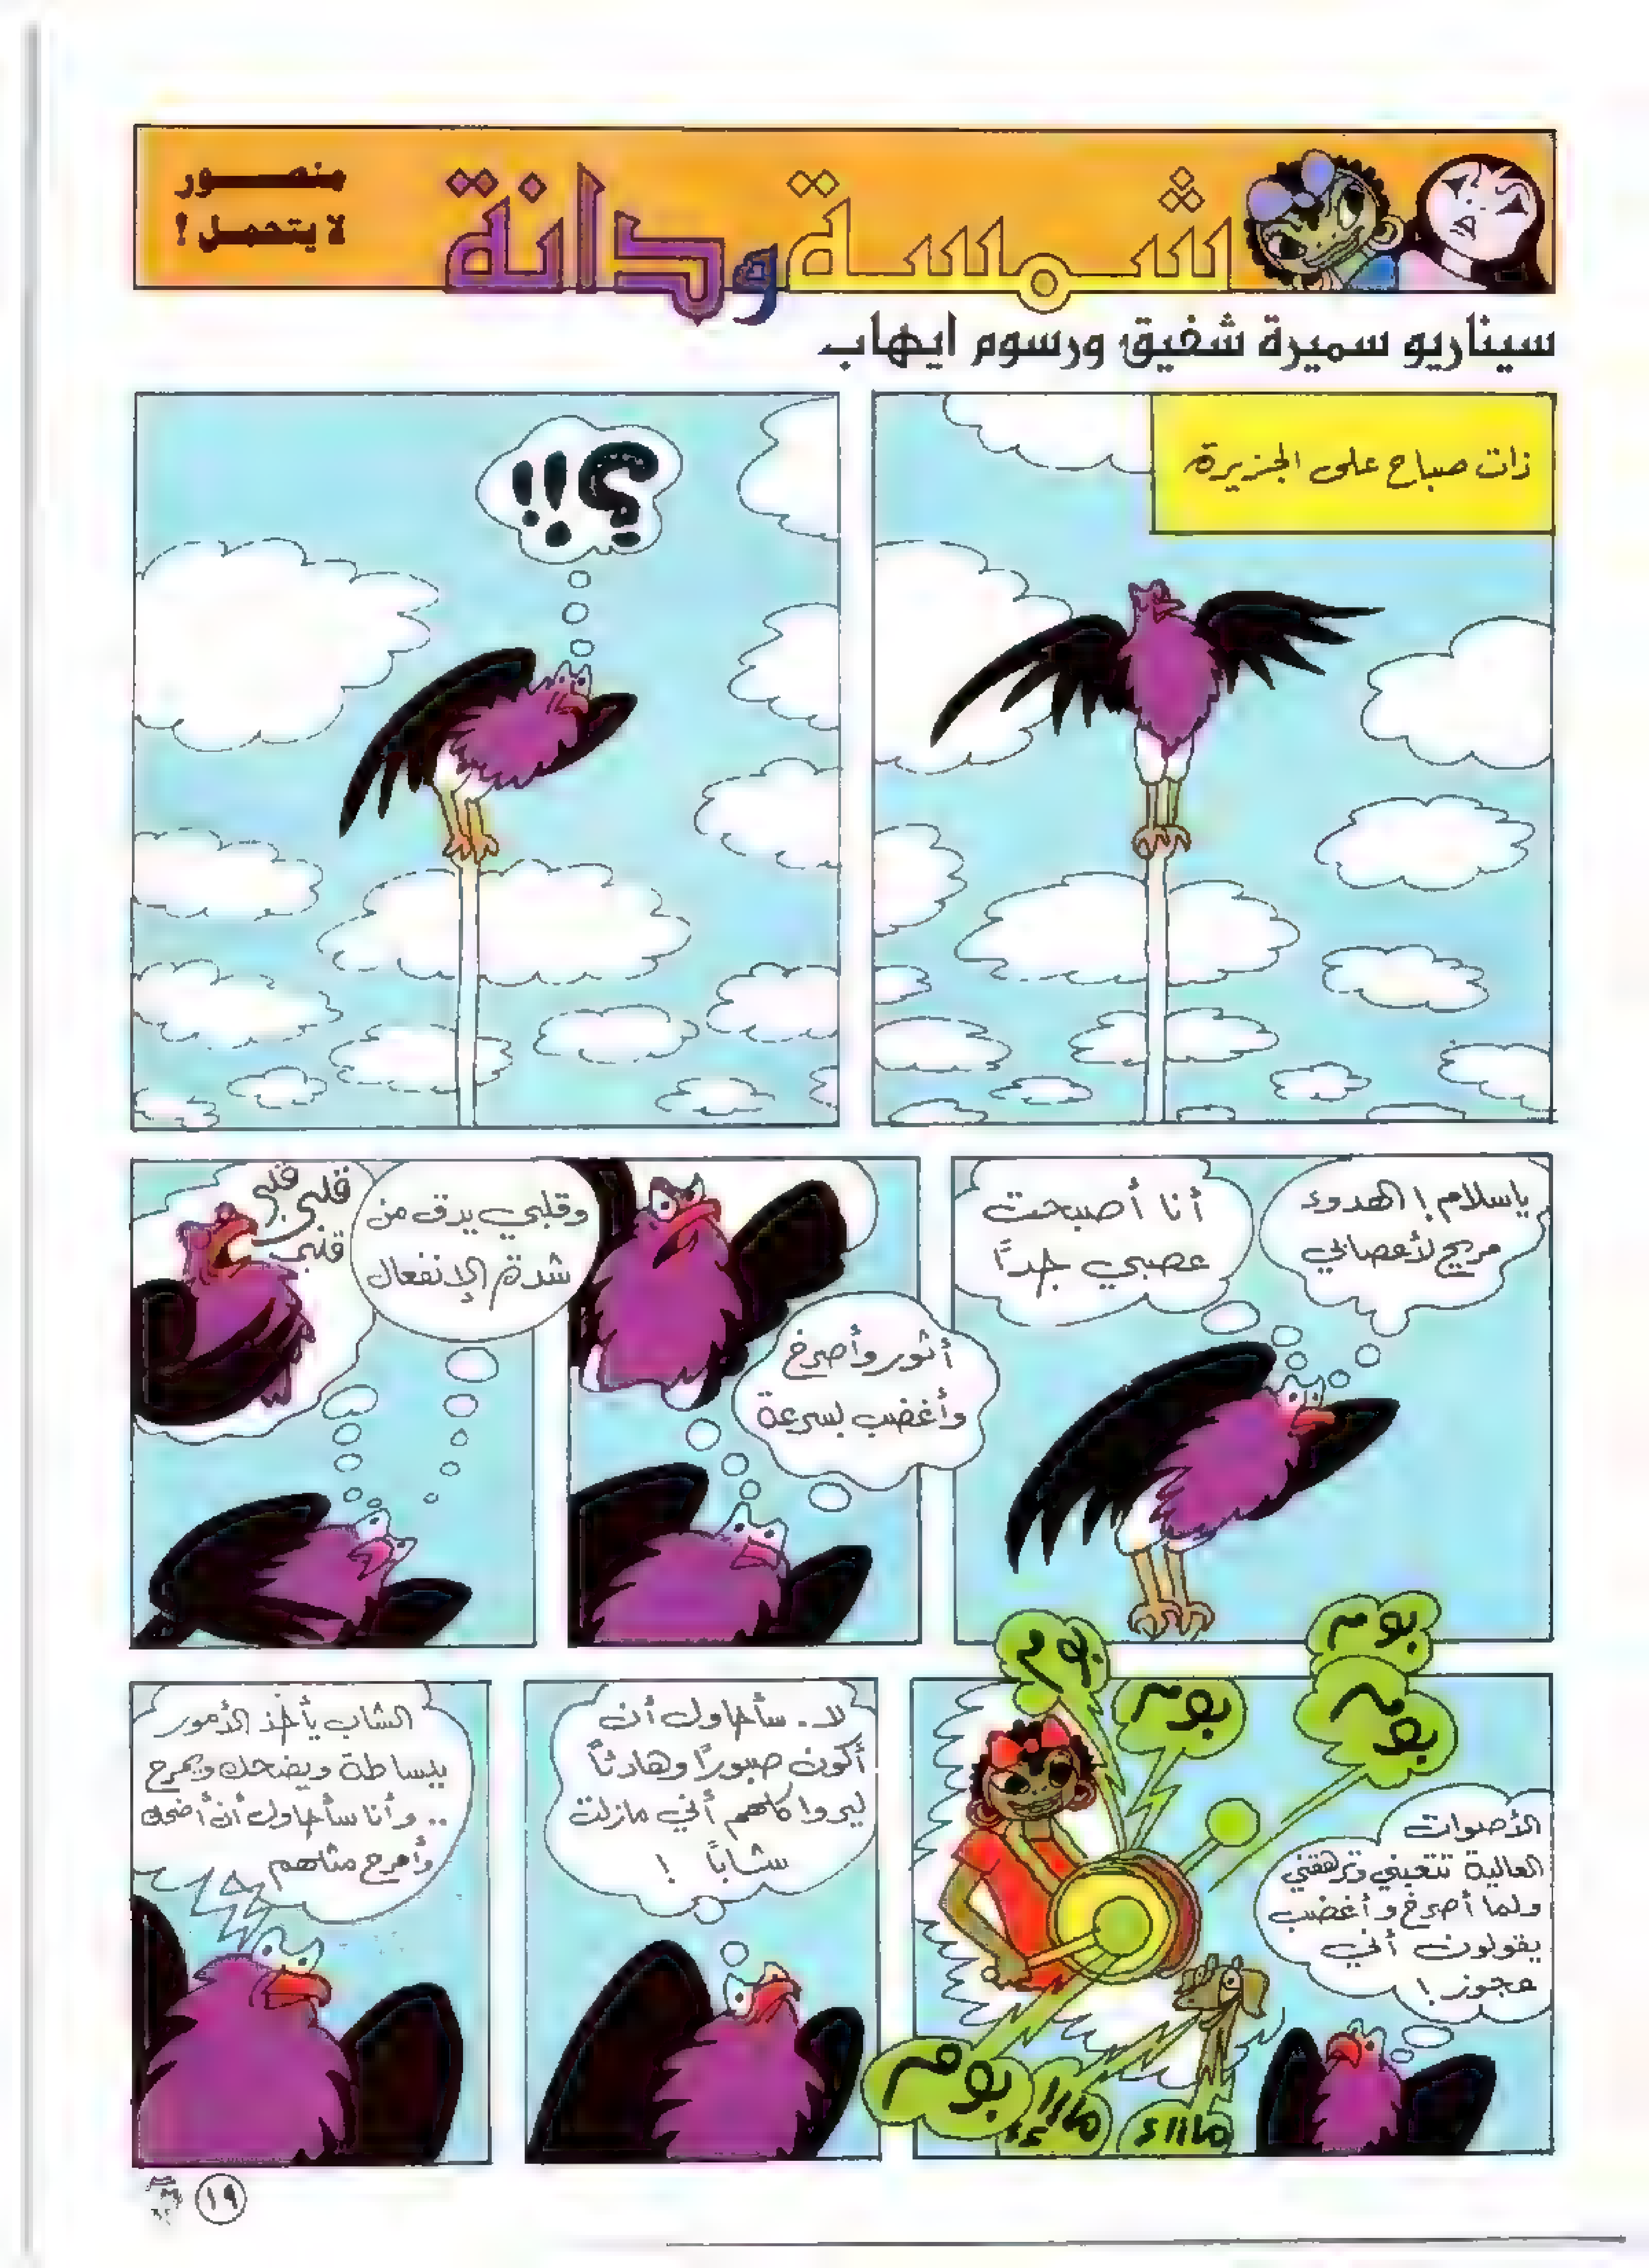 شمسة ودانة
منصور
لا يتحمل !
سيناريو سميرة شفيق ورسوم ايهاب
ذات صباح على الجزيرة
؟!!
ياسلام ! الهدوء
مريح لأعصابي
أنا أصبحت
عصبي جداً
أثور وأصرخ
وأغضب بسرعة
وقلبي يدق من
شدة الإنفعال
قلبي
قلبي
قلبي
بوم
بوم
بوم
بوم
الأصوات
العالية تتعبني وترهقني
ولما أصرخ وأغضب
يقولون أني
عجوز !
بوم
ماااء
ماااء
لا.. سأحاول أن
أكون صبوراً وهادئاً
ليروا كلهم أني مازلت
شاباً !
الشاب يأخذ الأمور
ببساطة ويضحك ويمرح
.. وأنا سأحاول أن أضحك
وأمرح مثلهم
١٩